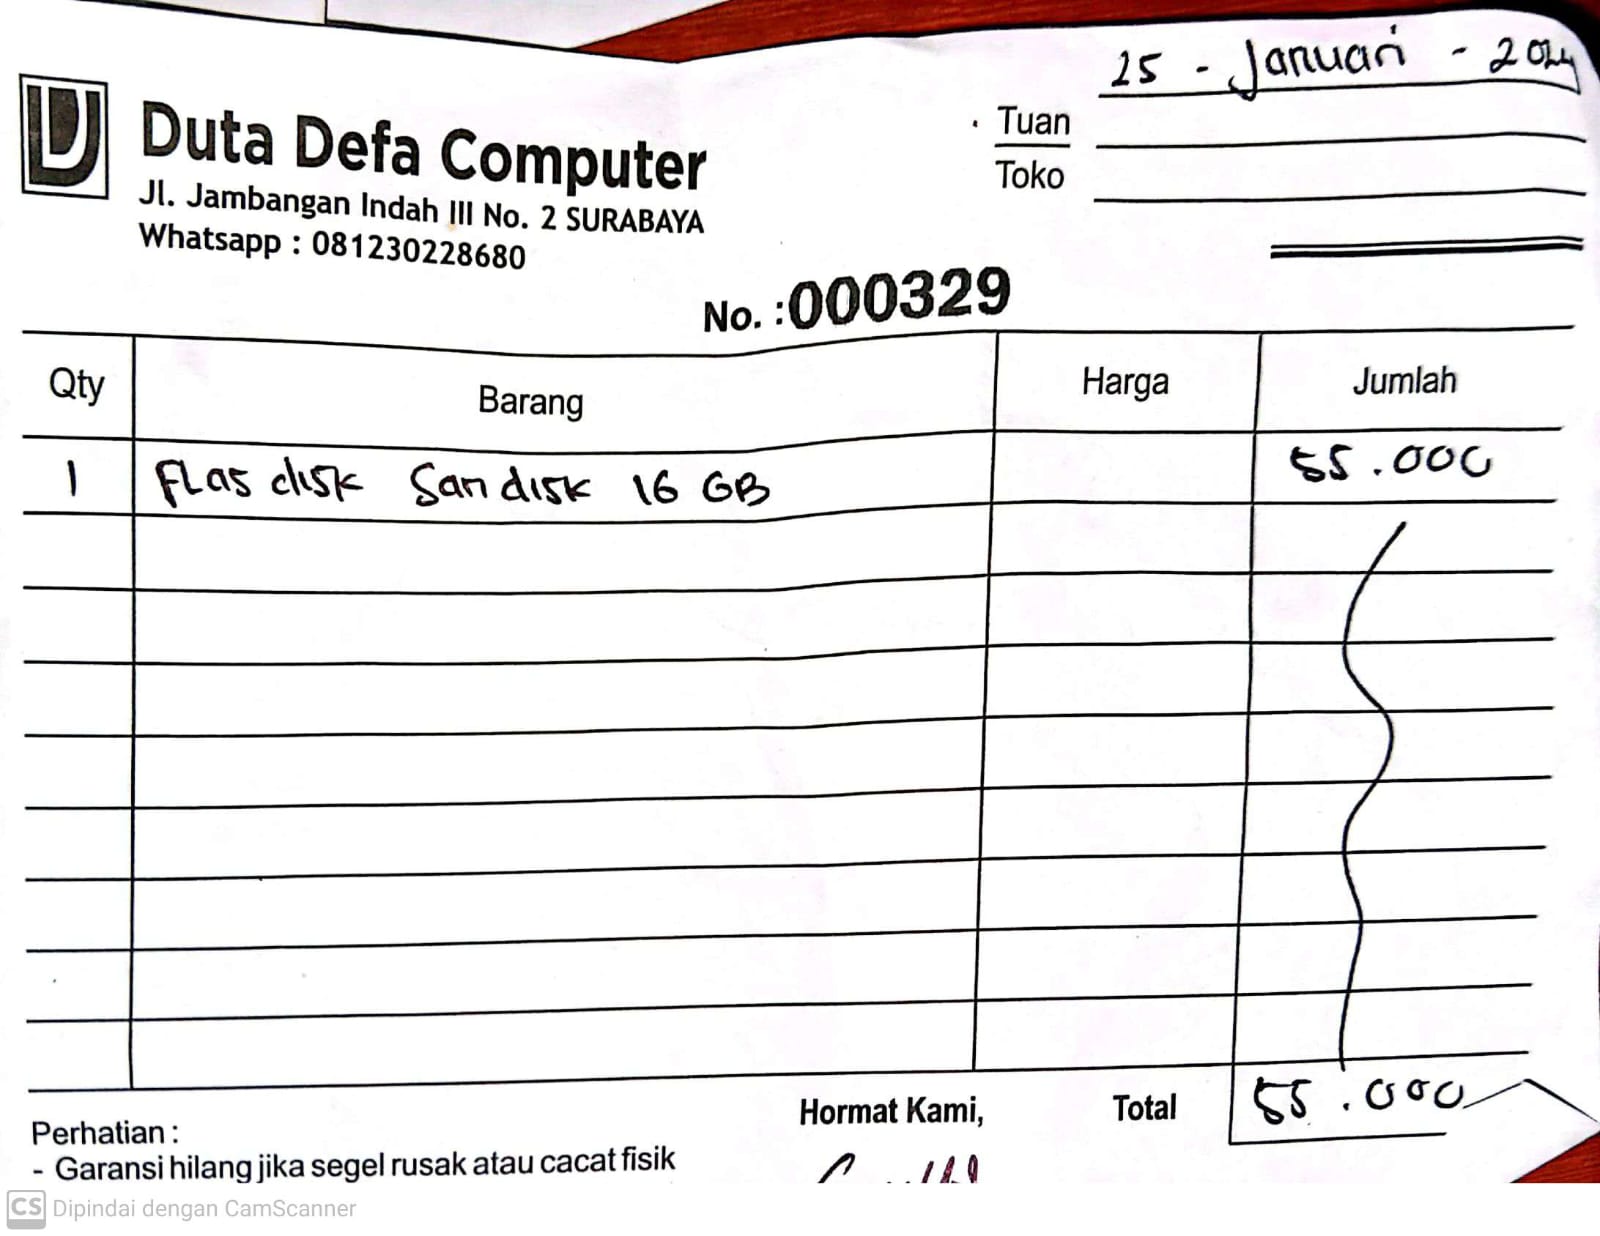 25 - Januari - 2024
Duta Defa Computer
Jl. Jambangan Indah III No. 2 SURABAYA
Whatsapp : 081230228680
Tuan
Toko
No. : 000329
Qty Barang Harga Jumlah
1 FLas disk Sandisk 16 GB 55.000
Hormat Kami, Total 55.000
Perhatian :
- Garansi hilang jika segel rusak atau cacat fisik
CS Dipindai dengan CamScanner